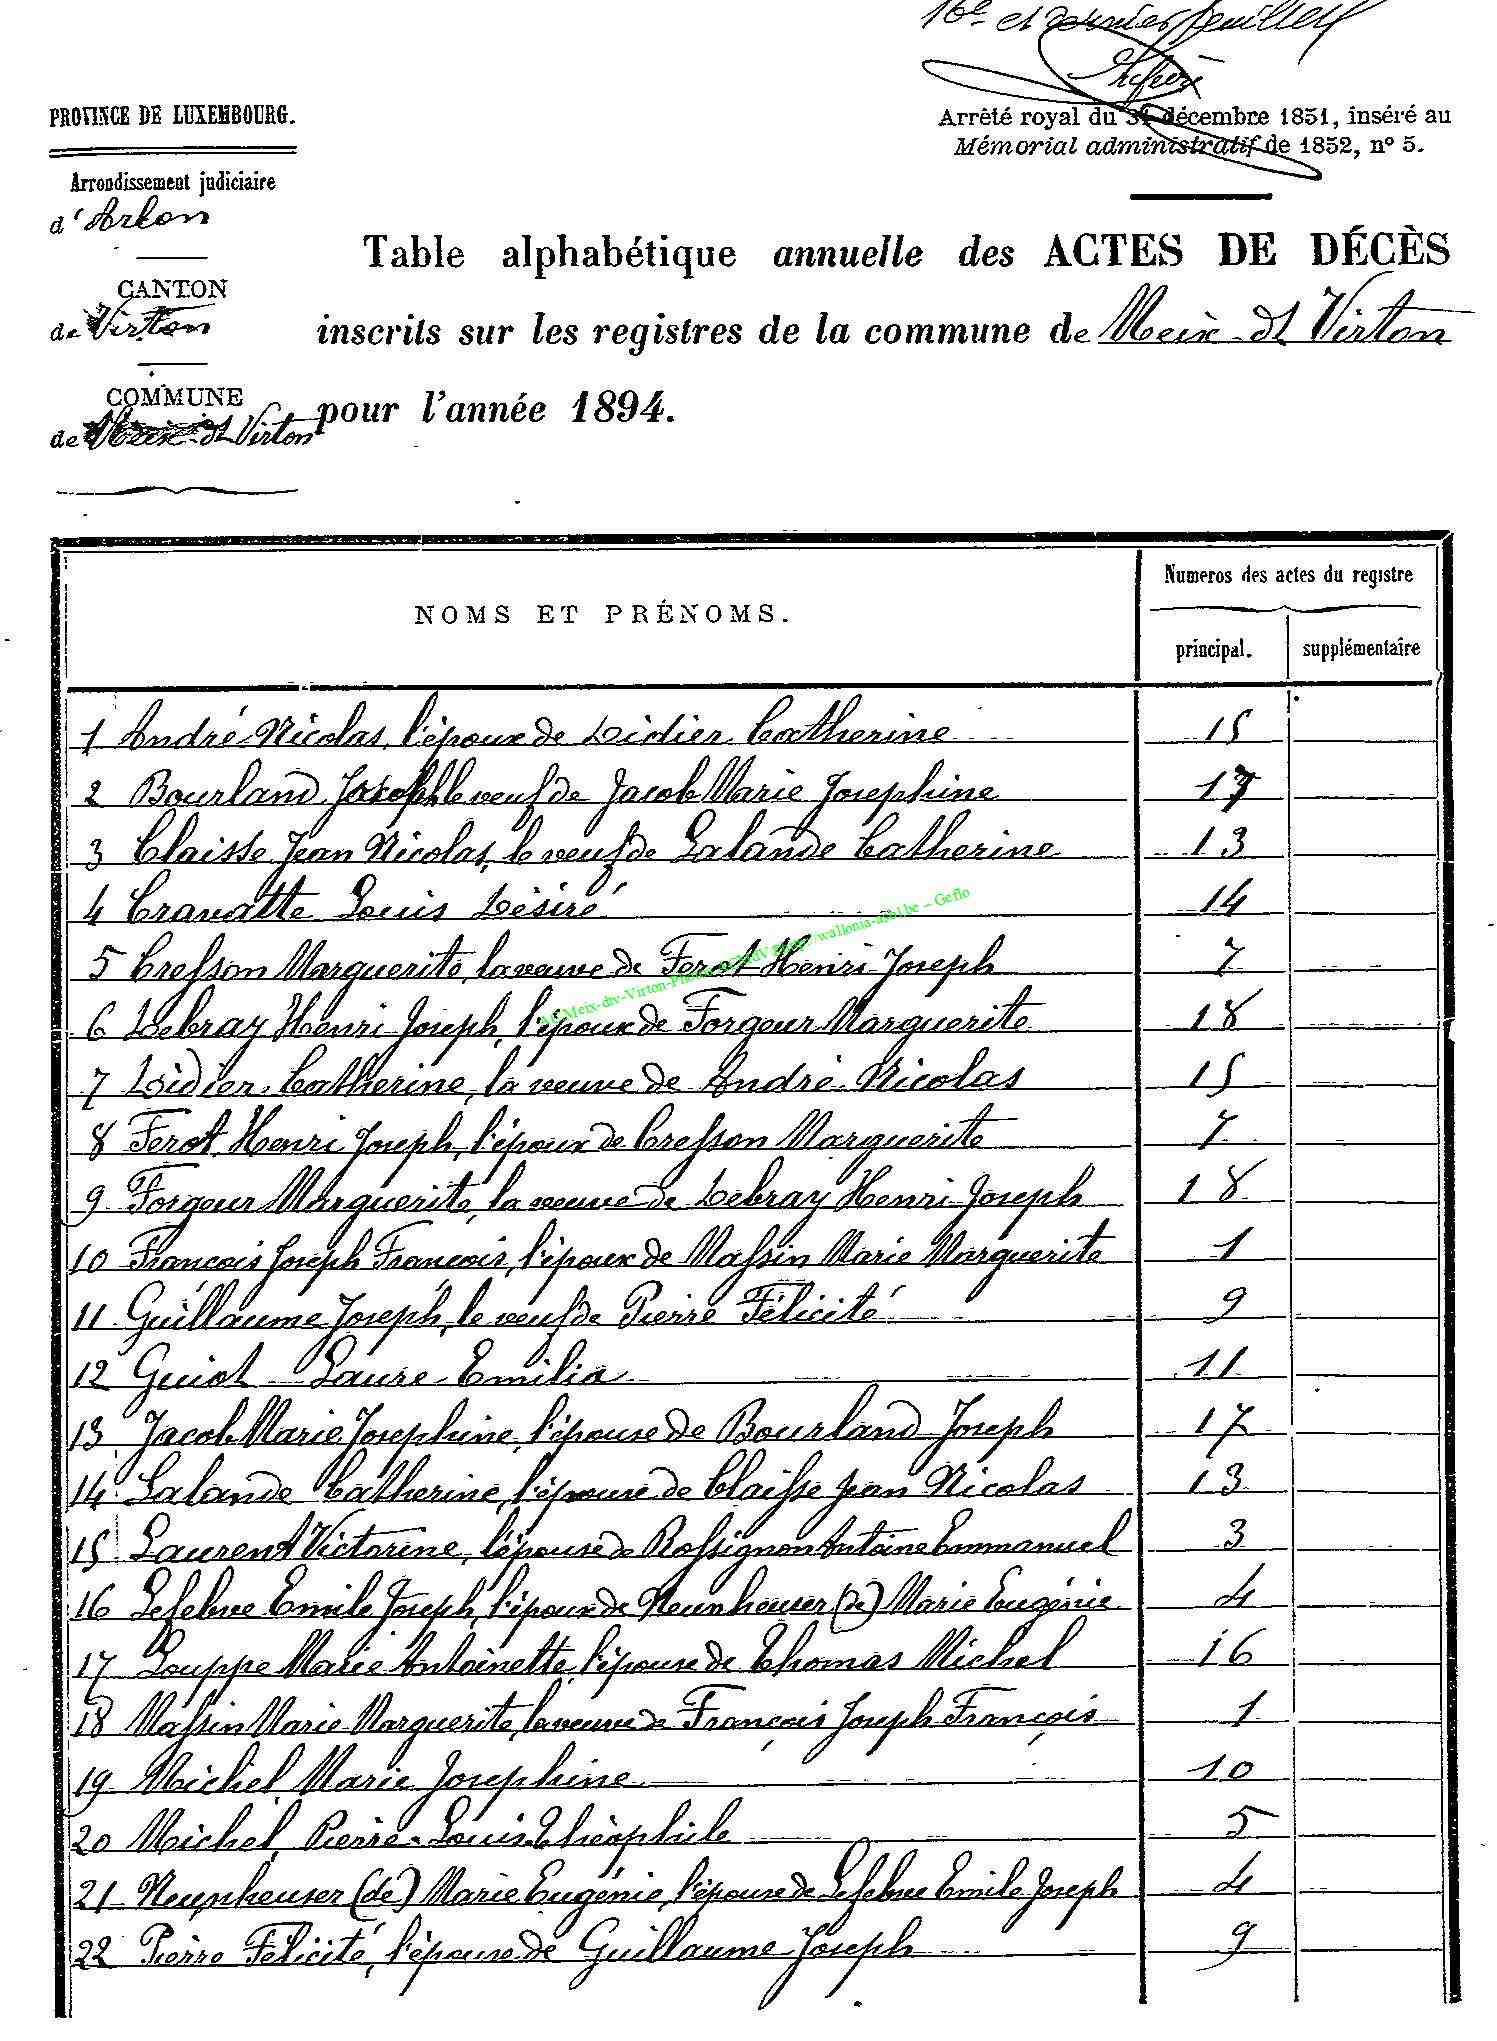 16e et dernier feuillet
PROVINCE DE LUXEMBOURG.
Arrêté royal du 31 décembre 1851, inséré au
Mémorial administratif de 1852, nº 5.
Arrondissement judiciaire
d'Arlon
CANTON
de Virton
COMMUNE
de Meix-dt Virton
Table alphabétique annuelle des ACTES DE DÉCÈS
inscrits sur les registres de la commune de Meix-dt Virton
pour l'année 1894.
NOMS ET PRÉNOMS.
Numeros des actes du registre
principal. supplémentaire
1 André Nicolas, l'époux de Didier Catherine 15
2 Bourland Joseph le veuf de Jacob Marie Josephine 17
3 Claisse Jean Nicolas, le veuf de Lalande Catherine 13
4 Cravatte Louis Désiré 14
5 Cresson Marguerite, la veuve de Ferot Henri Joseph 7
6 Debray Henri Joseph, l'époux de Forgeur Marguerite 18
7 Didier Catherine, la veuve de André Nicolas 15
8 Ferot Henri Joseph, l'époux de Cresson Marguerite 7
9 Forgeur Marguerite, la veuve de Debray Henri Joseph 18
10 François Joseph François, l'époux de Massin Marie Marguerite 1
11 Guillaume Joseph, le veuf de Pierre Félicité 9
12 Guiot Laure Emilia 11
13 Jacob Marie Josephine, l'épouse de Bourland Joseph 17
14 Lalande Catherine, l'épouse de Claisse Jean Nicolas 13
15 Laurent Victorine, l'épouse de Rossignon Antoine Emmanuel 3
16 Lefebvre Emile Joseph, l'époux de Neunheuser (de) Marie Eugénie 4
17 Louppe Marie Antoinette, l'épouse de Thomas Michel 16
18 Massin Marie Marguerite, la veuve de François Joseph François 1
19 Michel Marie Josephine 10
20 Michel, Pierre-Louis Théophile 5
21 Neunheuser (de) Marie Eugénie, l'épouse de Lefebvre Emile Joseph 4
22 Pierre Félicité, l'épouse de Guillaume Joseph 9